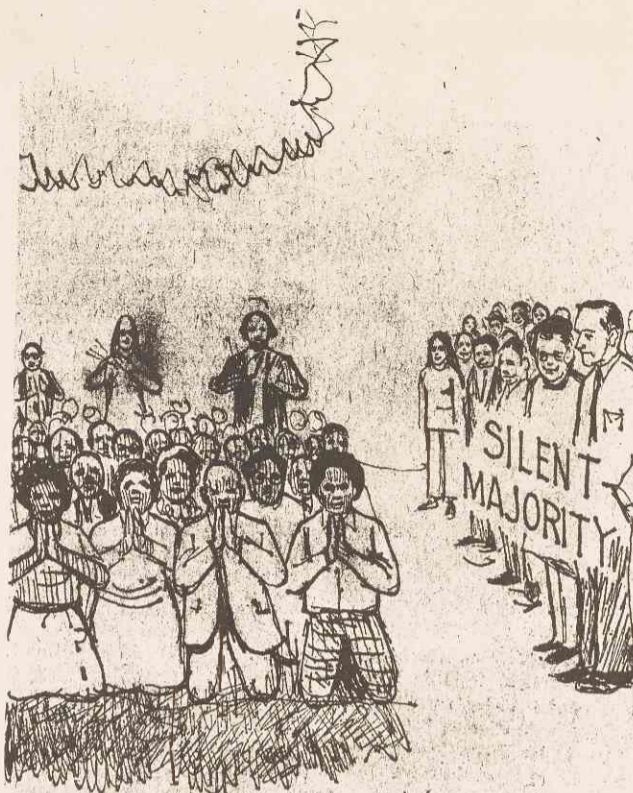 SILENT
MAJORITY